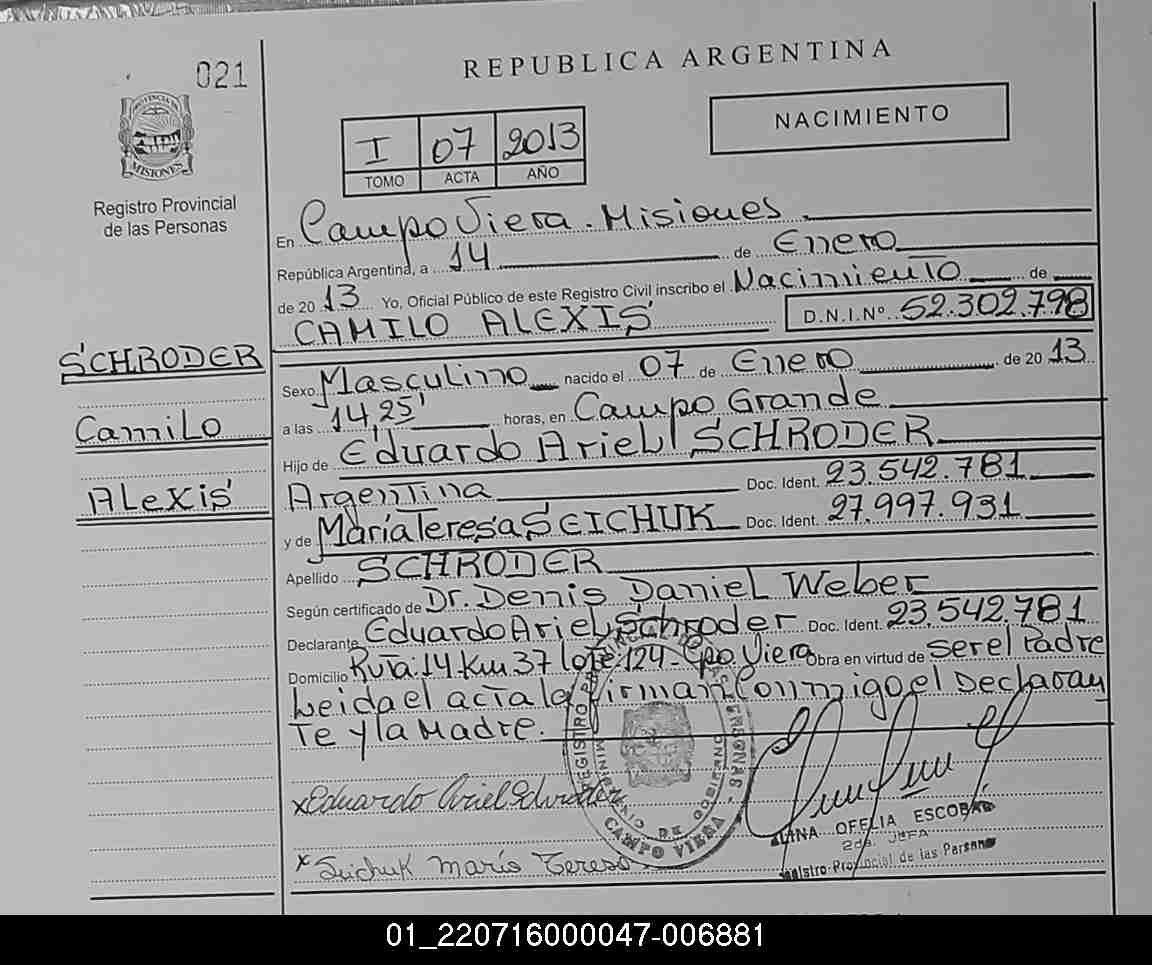 021
PROVINCIA DE
MISIONES
Registro Provincial
de las Personas
REPUBLICA ARGENTINA
I 07 2013
TOMO ACTA AÑO
NACIMIENTO
En Campo Viera. Misiones
República Argentina, a 14 de Enero
de 20 13 Yo, Oficial Público de este Registro Civil inscribo el Nacimiento de
CAMILO ALEXIS D.N.I.Nº 52.302.798
SCHRODER
Camilo
ALexis
Sexo Masculino nacido el 07 de Enero de 20 13
a las 14,25' horas, en Campo Grande
Hijo de Eduardo Ariel SCHRODER
Argentina Doc. Ident. 23.542.781
y de María Teresa SEICHUK Doc. Ident. 27.997.931
Apellido SCHRODER
Según certificado de Dr. Denis Daniel Weber
Declarante Eduardo Ariel Schroder Doc. Ident. 23.542.781
Domicilio Ruta:14 Km 37 lote:124-Cpo. Viera Obra en virtud de ser el Padre
Leida el acta la Firman Conmigo el Declaran
Te y la Madre.
x Eduardo Ariel Schroder
x Seichuk María Teresa
REGISTRO PROVINCIAL DE LAS PERSONAS -
MINISTERIO DE GOBIERNO
CAMPO VIERA
OFELIA ESCOBAR
2da. JEFA
Registro Provincial de las Personas
01_220716000047-006881